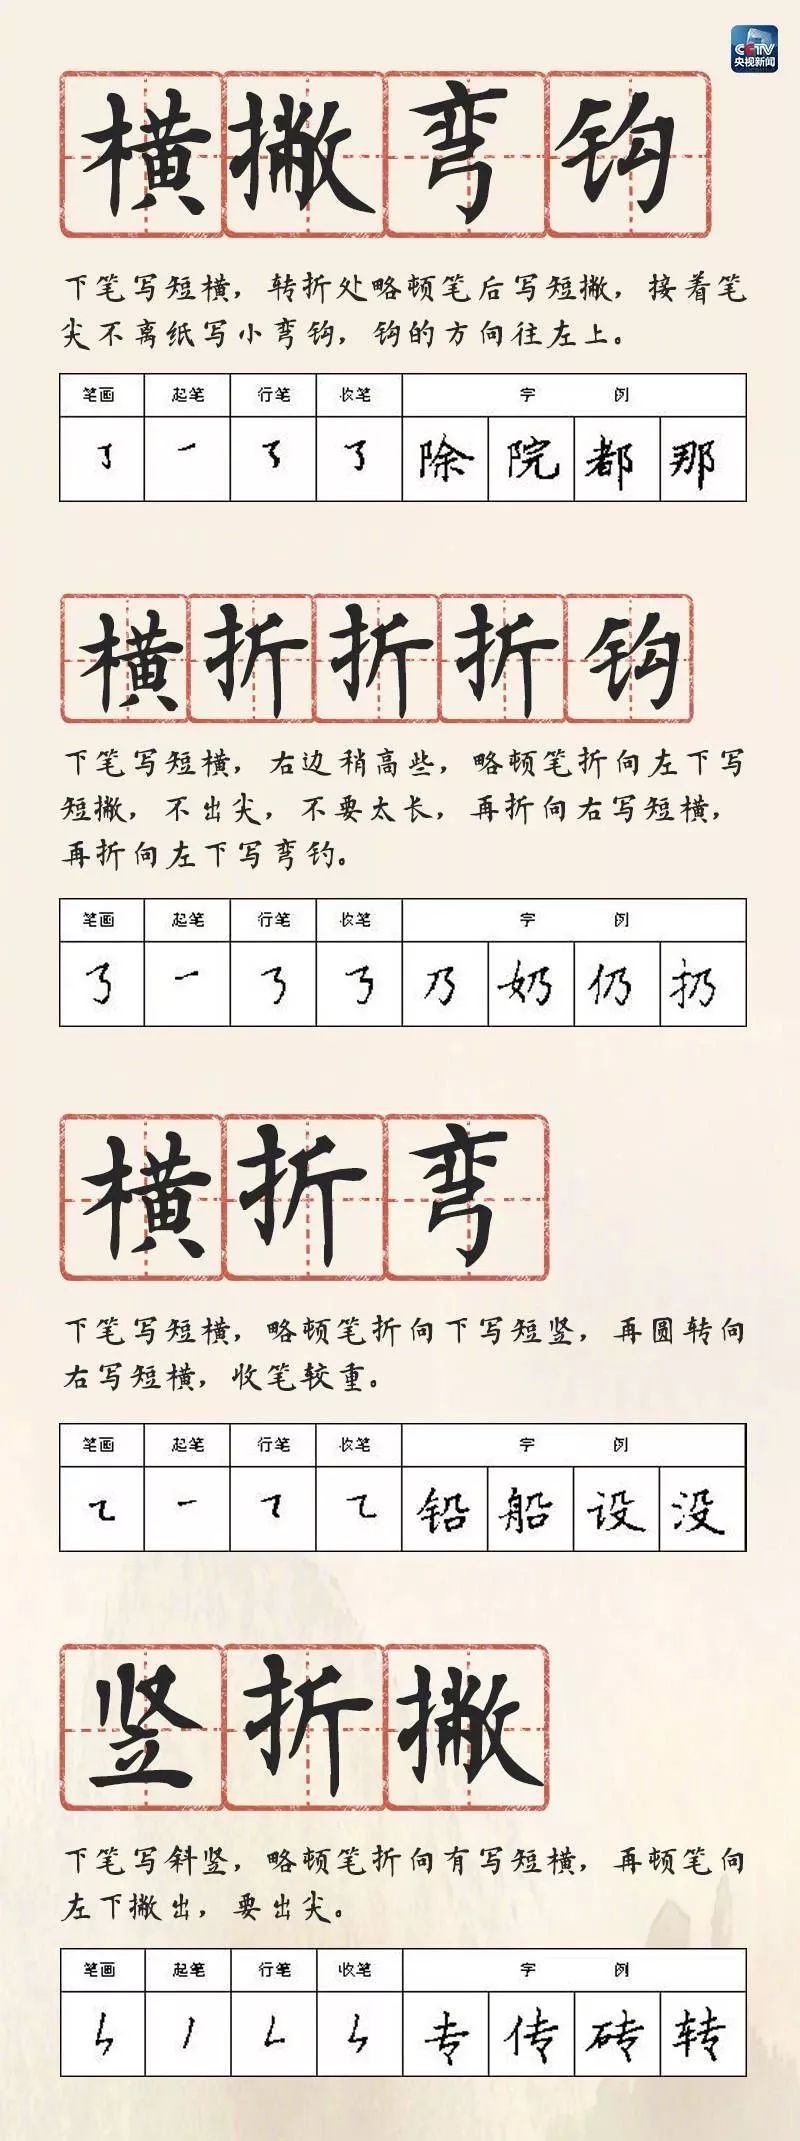 CCTV
央视新闻
横撇弯钩
下笔写短横，转折处略顿笔后写短撇，接着笔
尖不离纸写小弯钩，钩的方向往左上。
笔画 起笔 行笔 收笔 字 例
除 院 都 那
横折折折钩
下笔写短横，右边稍高些，略顿笔折向左下写
短撇，不出尖，不要太长，再折向右写短横，
再折向左下写弯钓。
笔画 起笔 行笔 收笔 字 例
乃 奶 仍 扔
横折弯
下笔写短横，略顿笔折向下写短竖，再圆转向
右写短横，收笔较重。
笔画 起笔 行笔 收笔 字 例
铅 船 设 没
竖折撇
下笔写斜竖，略顿笔折向有写短横，再顿笔向
左下撇出，要出尖。
笔画 起笔 行笔 收笔 字 例
专 传 砖 转